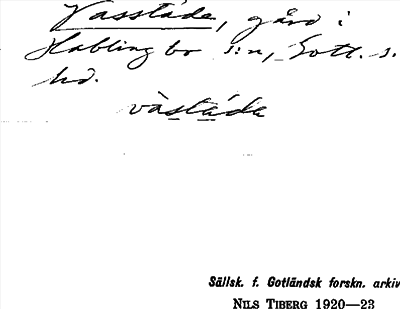 Vasstäde, gård i
Hablingbo s:n, Gotl. s.
hd.
västäde
Sällsk. f. Gotländsk forskn. arkiv
NILS TIBERG 1920—23